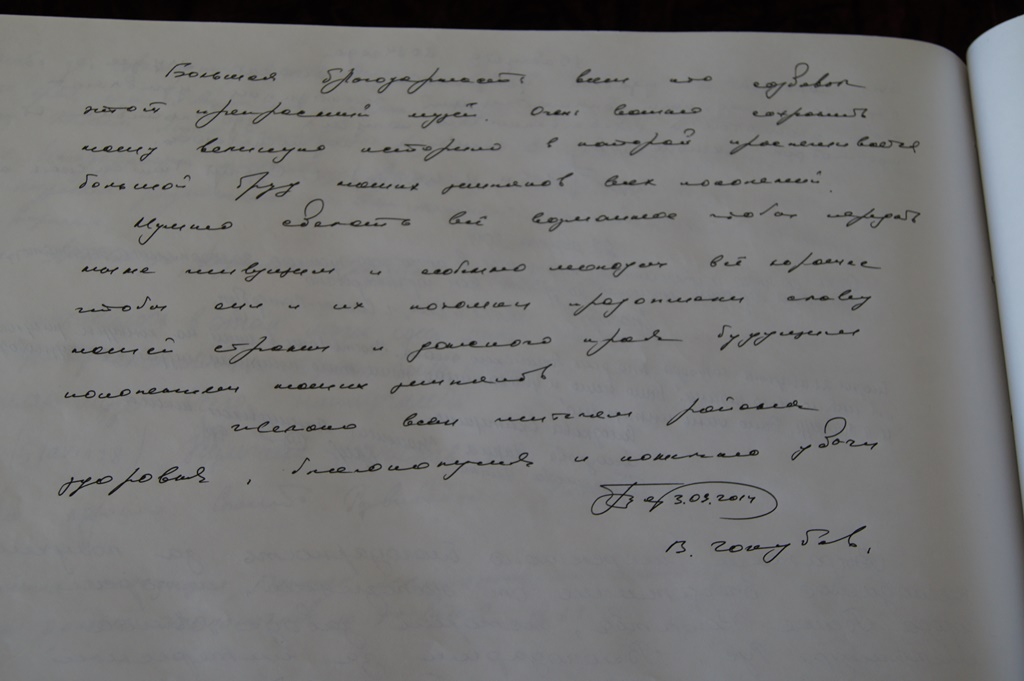 Большая благодарность всем кто создавал
этот прекрасный музей. Очень важно сохранить
нашу великую историю в которой прослеживается
большой труд наших земляков всех поколений.
Нужно сделать всё возможное чтобы передать
ныне живущим и особенно молодым всё хорошее
чтобы они и их потомки продолжали славу
нашей страны и донского края будущим
поколениям наших земляков
Желаю всем жителям района
здоровья, благополучия и конечно удачи
3.09.2014
В. Голубев.